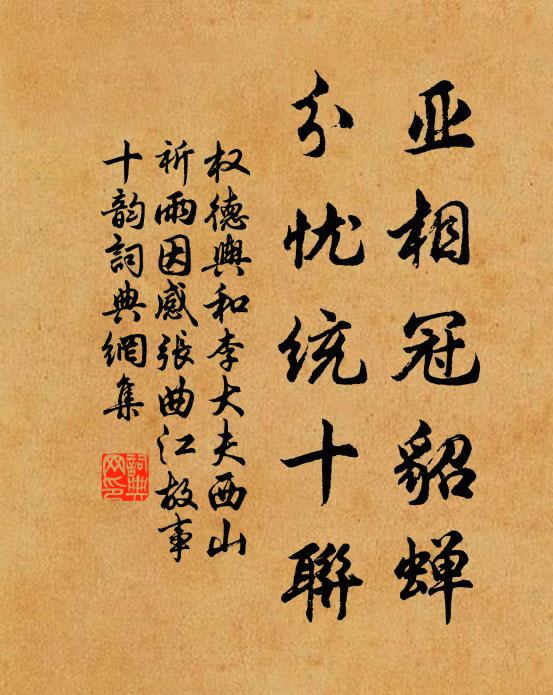 亚相冠貂蝉
分忧统十聨
权德輿和李大夫西山
祈雨因感張曲江故事
十韵詞典網集
詞典
网印